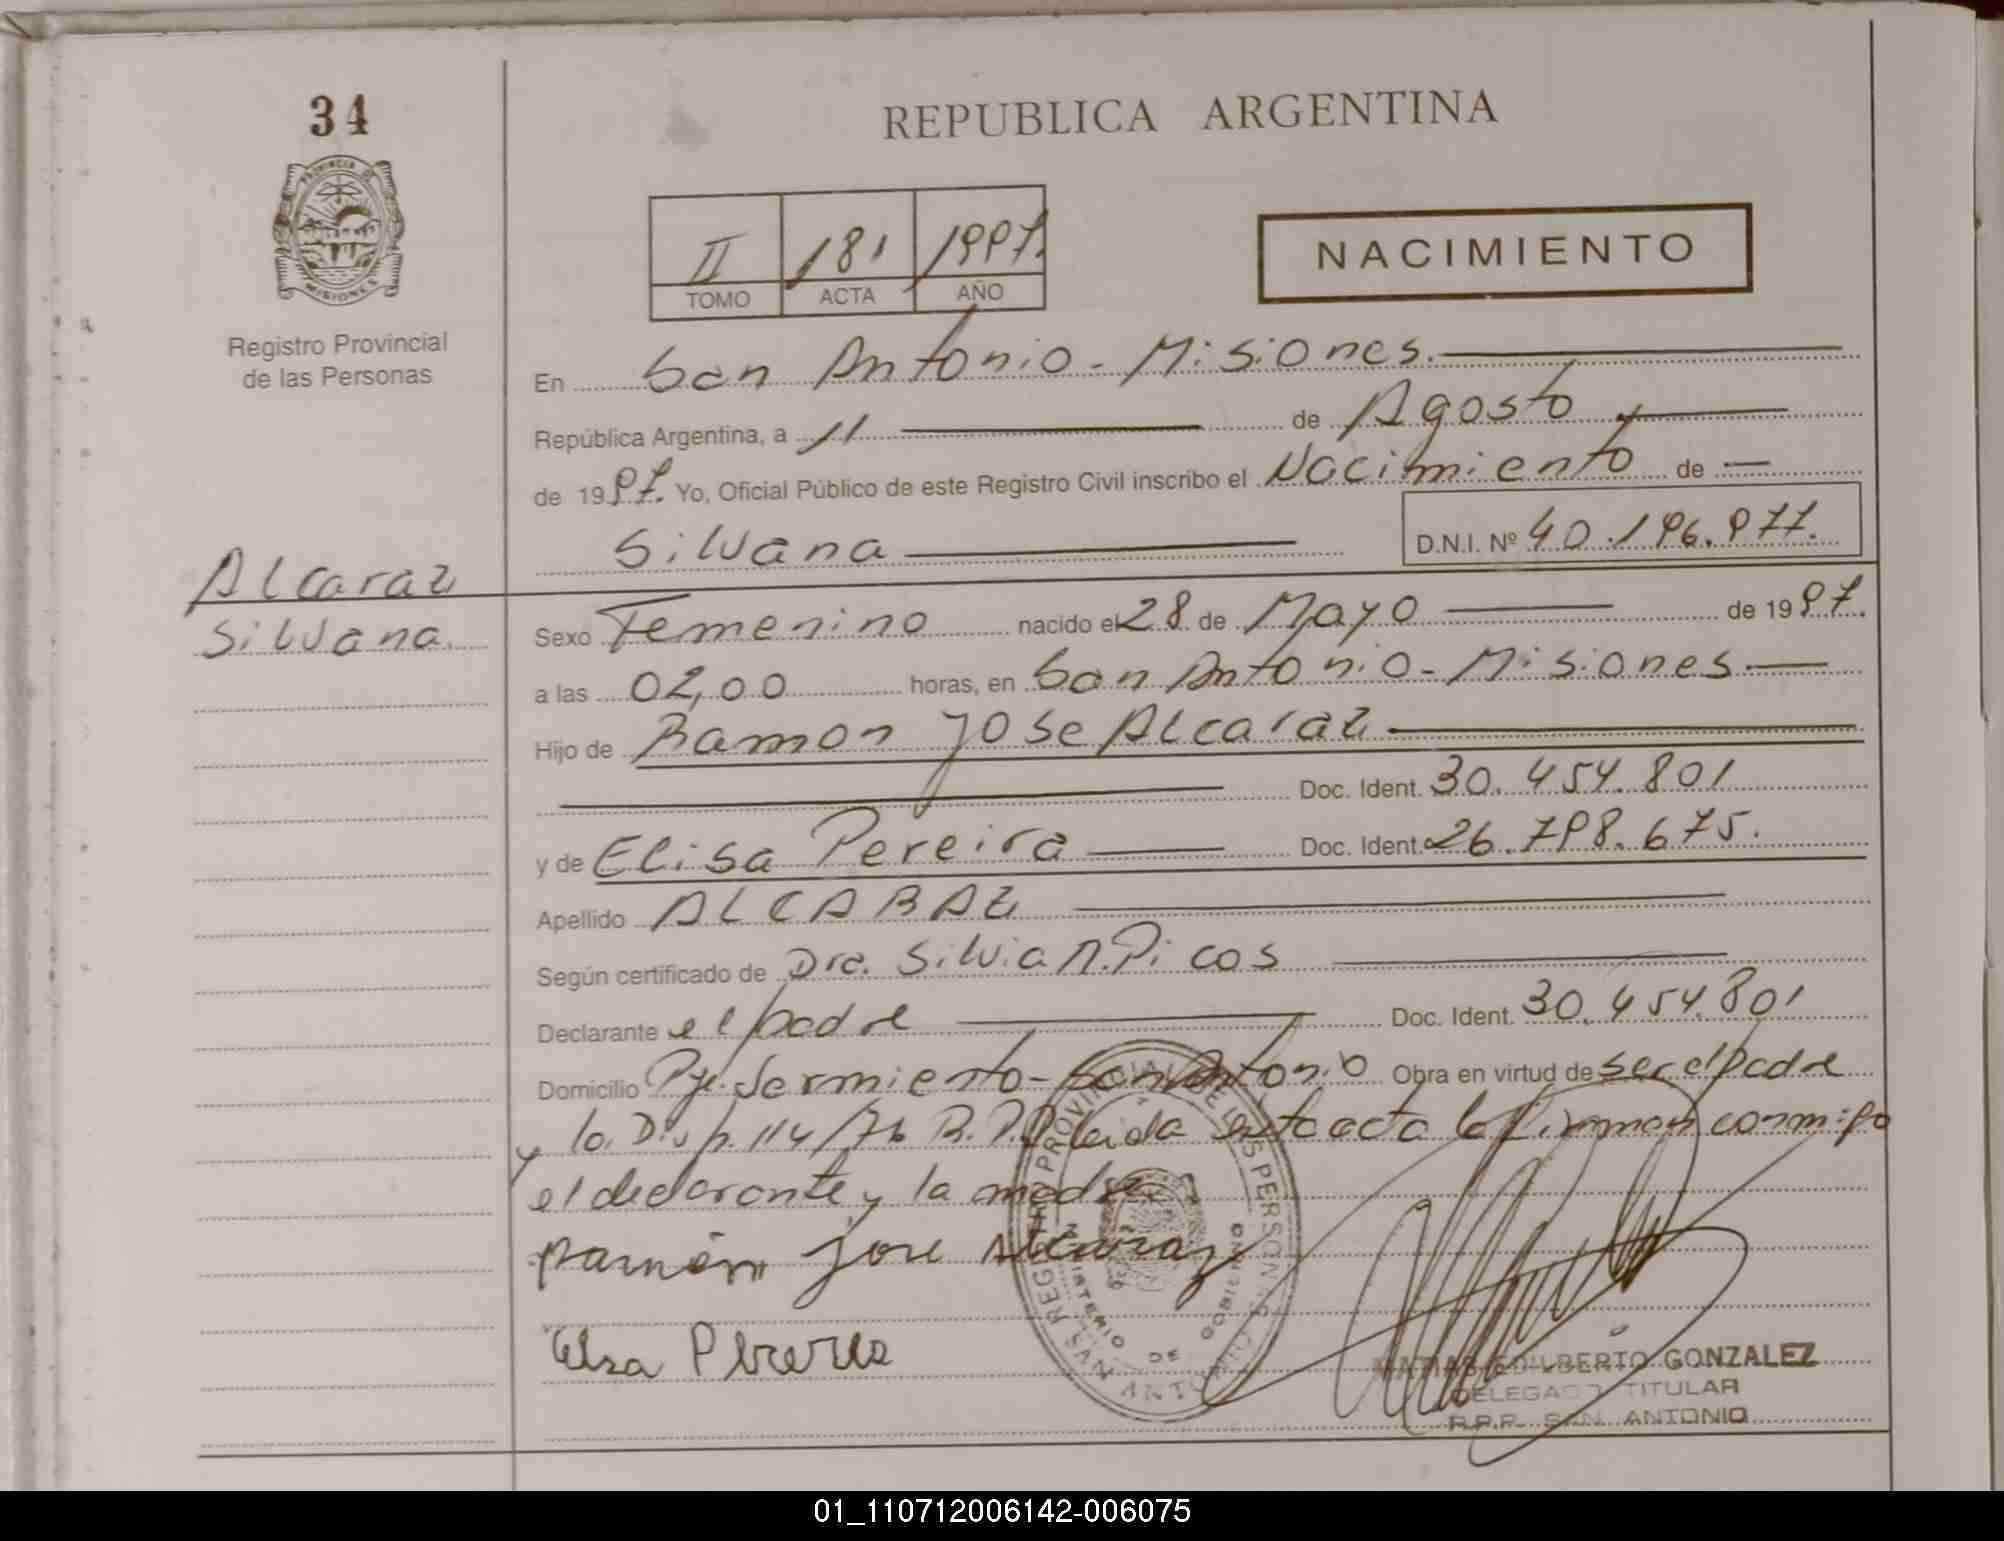 34
PROVINCIA DE
MISIONES
Registro Provincial
de las Personas
Alcaraz
Silvana.
REPUBLICA ARGENTINA
II 181 1997.
TOMO ACTA AÑO
NACIMIENTO
En San Antonio - Misiones.
República Argentina, a 11 de Agosto
de 1997. Yo, Oficial Público de este Registro Civil inscribo el Nacimiento de
Silvana D.N.I. Nº 40.196.977.
Sexo Femenino nacido el 28 de Mayo de 1997.
a las 02,00 horas, en San Antonio - Misiones
Hijo de Ramon Jose Alcaraz
Doc. Ident. 30.454.801
y de Elisa Pereira Doc. Ident. 26.798.675.
Apellido ALCARAZ
Según certificado de Dra. Silvia N. Picos
Declarante el padre Doc. Ident. 30.454.801
Domicilio Pje. Sarmiento - San Antonio Obra en virtud de ser el padre
y la Disp. 114/76 R.P.P. Leida esta acta la firman conmigo
el declarante y la madre
Ramón Jose Alcaraz
Elsa Pereira
REGISTRO PROVINCIAL DE LAS PERSONAS
MINISTERIO DE GOBIERNO
SAN ANTONIO
MATIAS EDILBERTO GONZALEZ
DELEGADO TITULAR
R.P.P. SAN ANTONIO
01_110712006142-006075